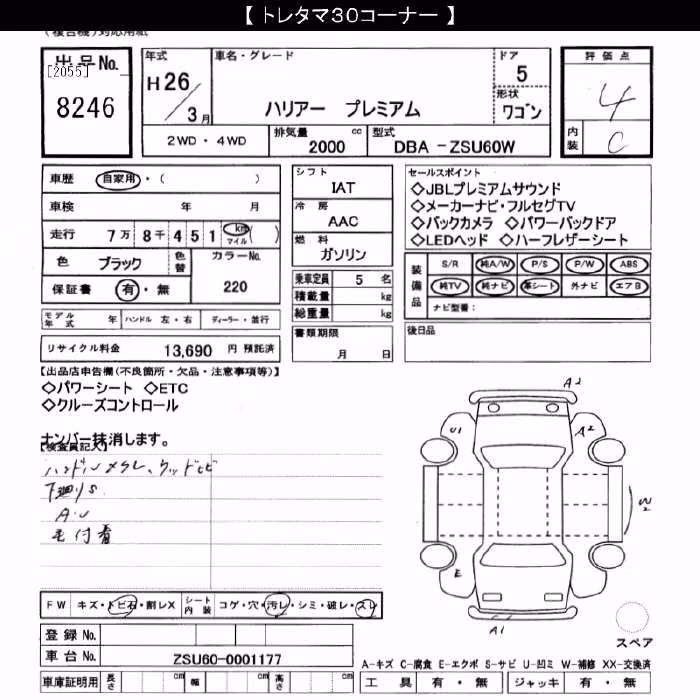 【 トレタマ30コーナー 】
(複合機)対応用紙
出品No.
[2055]
8246
年式
H26/3月
車名・グレード
ハリアー プレミアム
ドア
5
形状
ワゴン
評価点
4
内装
C
2WD・4WD
排気量 2000 cc
型式 DBA -ZSU60W
車歴 自家用・( )
車検 年 月
走行 7万8千451 km マイル ( )
色 ブラック
色替
カラーNo.
220
保証書 有・無
モデル年式 年
ハンドル 左・右
ディーラー・並行
リサイクル料金 13,690 円 預託済
シフト
IAT
冷房
AAC
燃料
ガソリン
乗車定員 5 名
積載量 kg
総重量 kg
書類期限
月 日
セールスポイント
◇JBLプレミアムサウンド
◇メーカーナビ・フルセグTV
◇バックカメラ ◇パワーバックドア
◇LEDヘッド ◇ハーフレザーシート
装備品
S/R 純A/W P/S P/W ABS
純TV 純ナビ 革シート 外ナビ エアB
ナビ型番:
後日品
【出品店申告欄(不良箇所・欠品・注意事項等)】
◇パワーシート ◇ETC
◇クルーズコントロール
ナンバー抹消します。
【検査員記入】
下廻りS
毛付着
A2
U1
A2
W2
E
A1
スペア
FW キズ・トビ石・割レX
シート内装 コゲ・穴・汚レ・シミ・破レ・スレ
登録No.
車台No. ZSU60-0001177
A-キズ C-腐食 E-エクボ S-サビ U-凹ミ W-補修 XX-交換済
車庫証明用 長さ cm 幅 cm 高さ cm
工具 有・無 ジャッキ 有・無